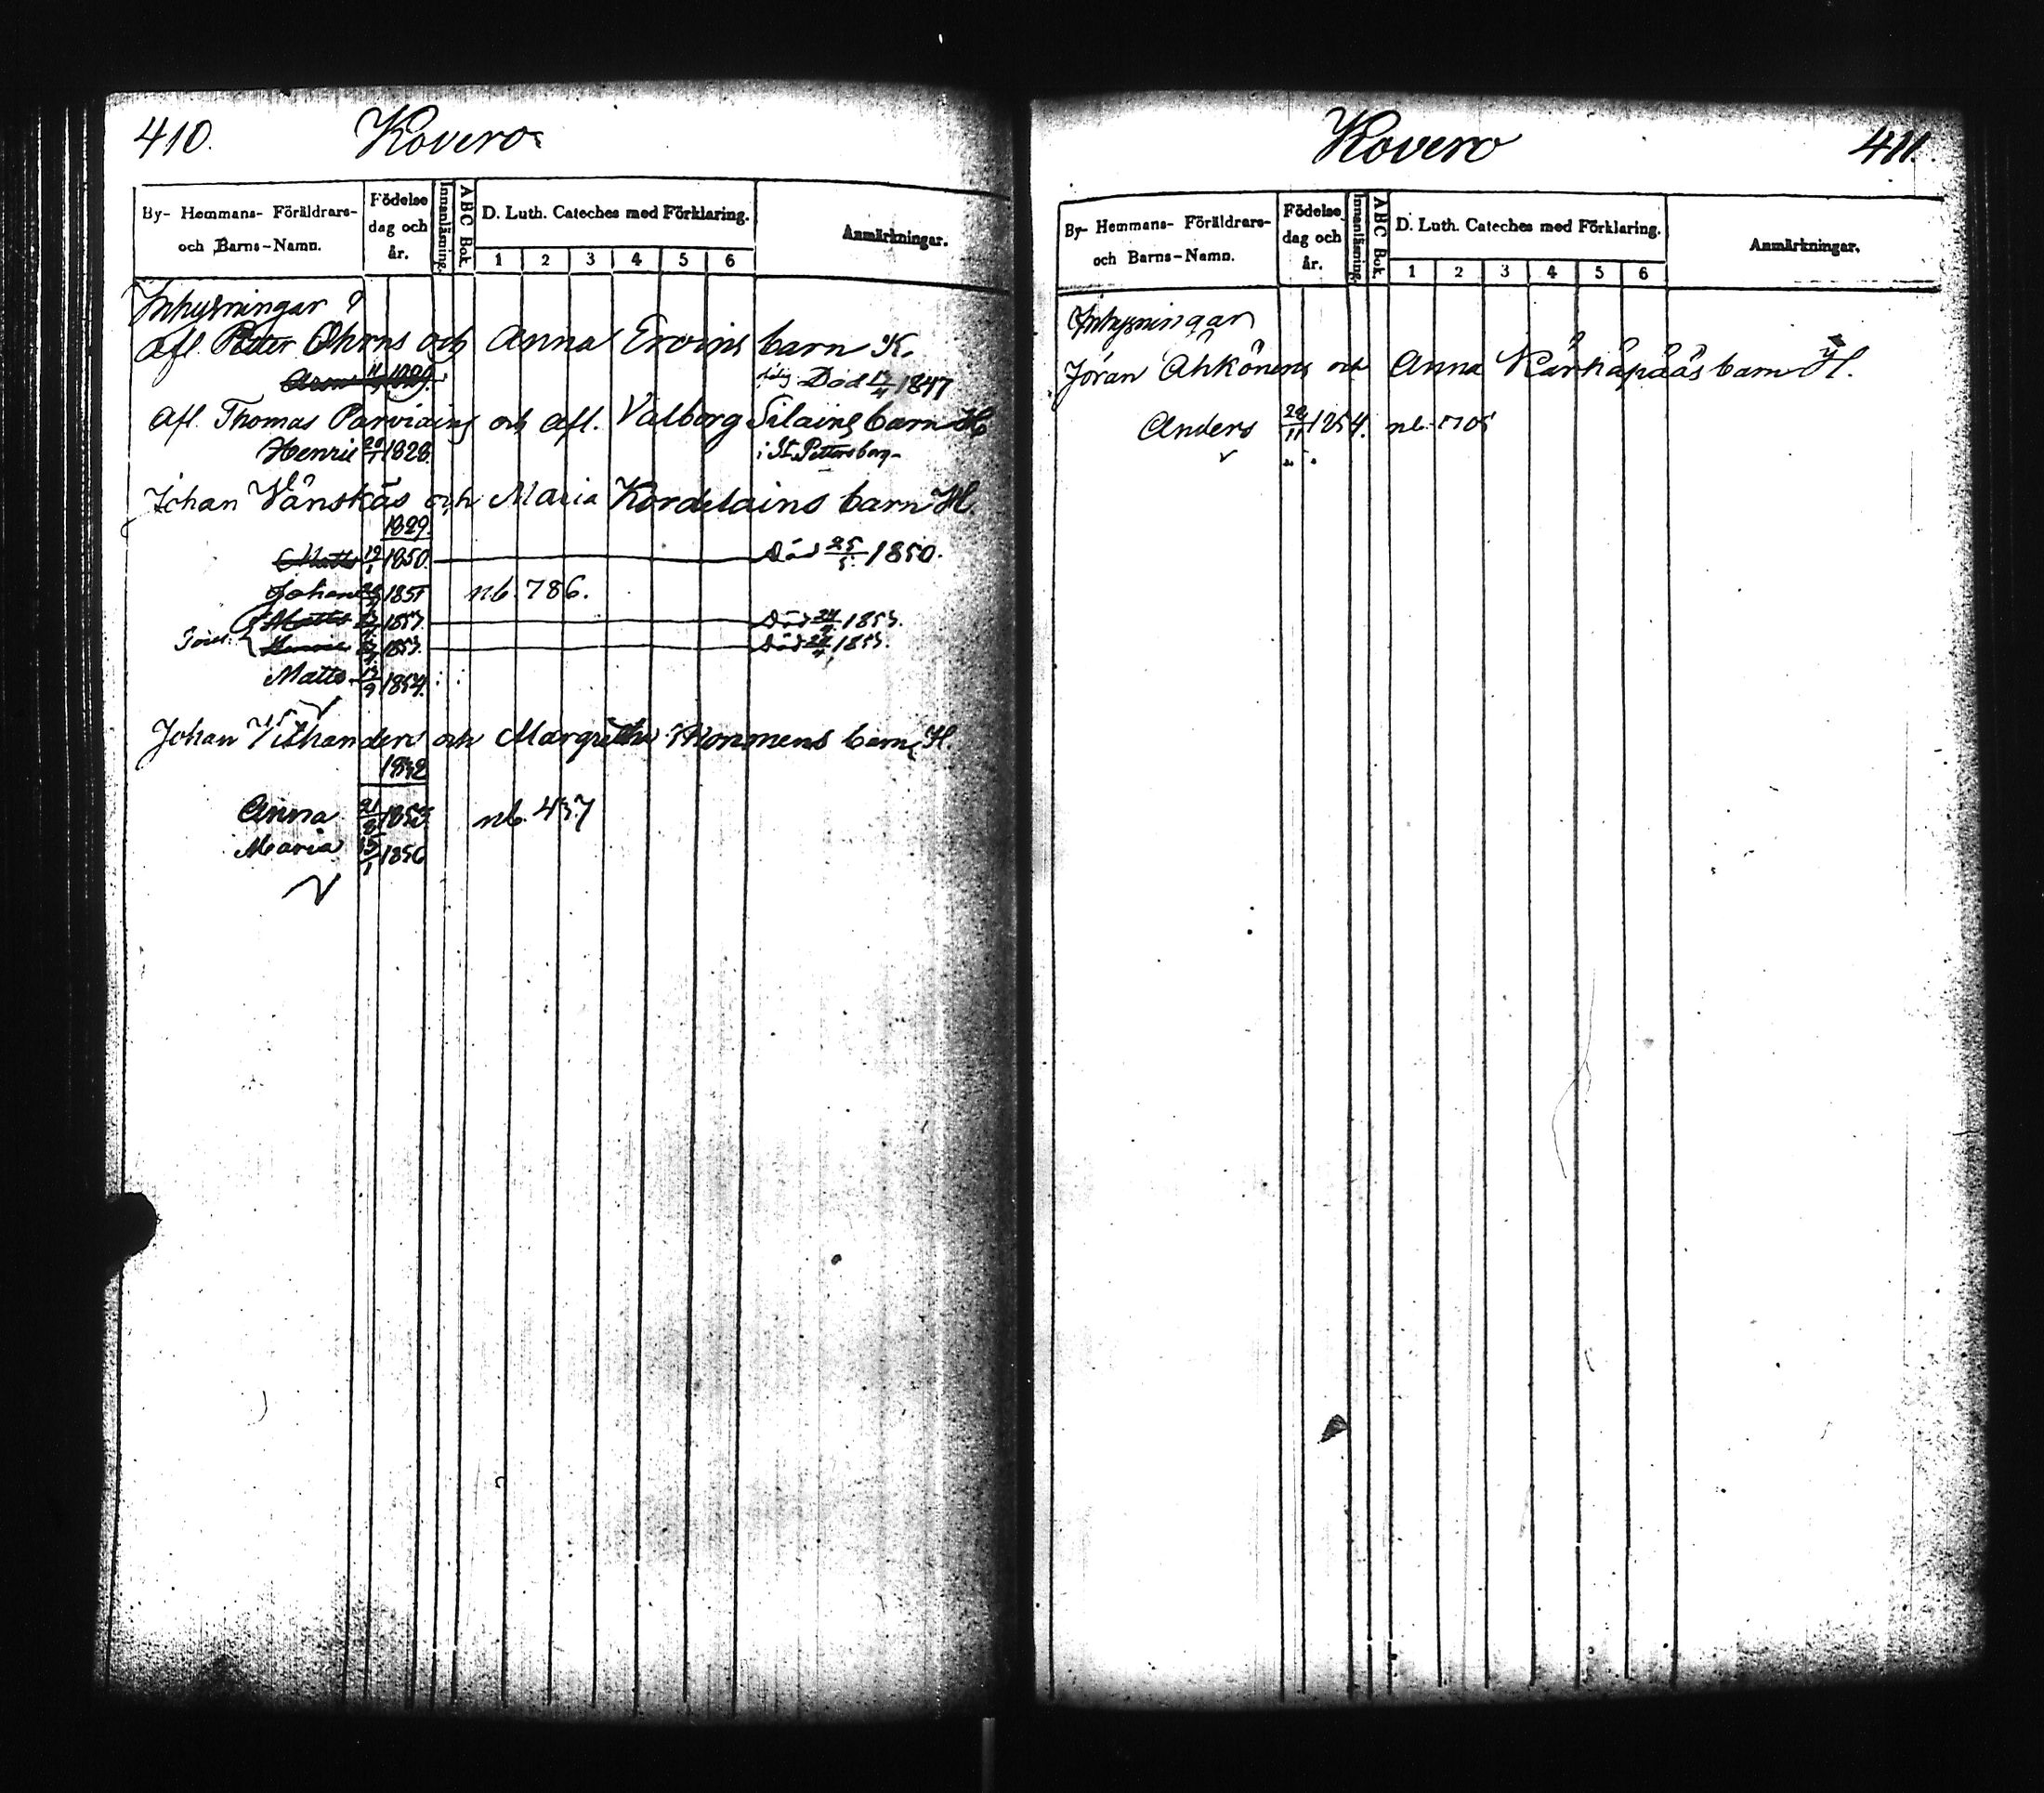 410. Kovero
By- Hemmans- Föräldrars-
och Barns-Namn.
Födelse
dag och
år.
Innanläsning.
A B C Bok.
D. Luth. Cateches med Förklaring.
1 2 3 4 5 6
Anmärkningar.
Inhysningar
Afl. Petter Ohvns och Anna Ervins barn K.
1829. Död 12/4 1847
Afl. Thomas Parviains och afl. Valborg Silains barn H
Henric 20/1 1828. i St. Pettersborg
Johan Vänskäs och Maria Kordelains barn H
1829.
Matts 19/1 1850. Död 25/5 1850.
Johan 1851 nb. 786.
Matts 1853. Död 24/4 1853.
1853. Död 24/4 1853.
Matts 17/9 1854.
Johan Vithanders och Margretha barn H
1832
Anna 21/8 1853 nb. 437
Maria 15/1 1856
Kovero 411.
By- Hemmans- Föräldrars-
och Barns-Namn.
Födelse
dag och
år.
Innanläsning.
A B C Bok.
D. Luth. Cateches med Förklaring.
1 2 3 4 5 6
Anmärkningar.
Inhysningar
Jöran Ahkönens och Anna Kärhäpääs barn H.
Anders 28/11 1854. nb. 705